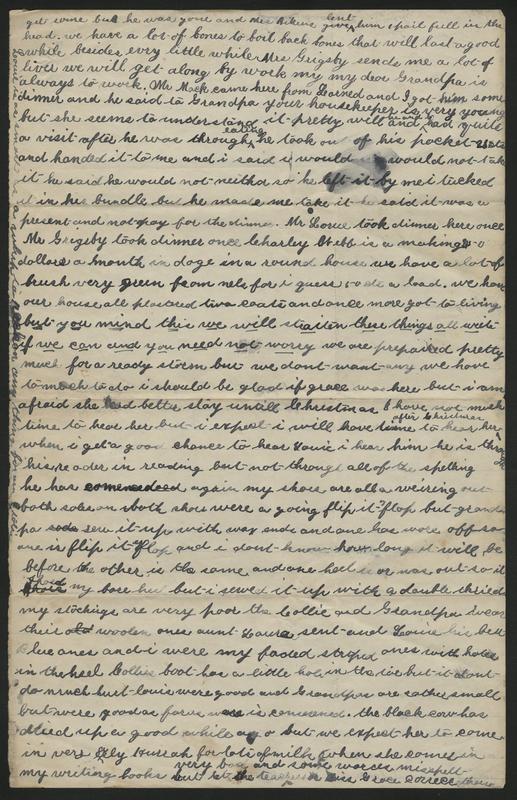 get some but he was gone and Mrs give him spait full in the
head. we have a lot of bones to boil back bones that will last a good
while besides evry little while Mrs Grigsby sends me a lot of
liver we will get along by work my my dear Grandpa is
always to work. Mr Mack came here from Larned and I got him some
dinner and he said to Grandpa your housekeeper is very young
but she seems to understand it pretty well and had quite
a visit after he was through eating he took out of his pocket
and handed it to me and i said i would would not take
it he said he would not neither so he left it by me i tucked
it in his bundle but he made me take it he said it was a
present and not pay for the dinner. Mr took dinner here once
Mr Grigsby took dinner once Charley Webb is a making
dollars a month in doge in a round house we have a lot of
brush very green from nels for i guess a load. we have
our house all plastured two coats and once more got to living
but you mind this we will straiten these things all write
if we can and you need not worry we are prepared pretty
much for a ready storm but we dont want any we have
to much to do i should be glad if grace was here but i am
afraid she had better stay untill Christmas I have not much
time to hear her but i expect i will have time to hear her after Christmas
when i get a good chance to hear Louie i hear him he is through
his reader in reading but not through all of the spelling
he has again my shoes are all a weiring out
both soles on both shoes were a going flip it flop but grand
pa sew it up with wax ends and one has wore off so
one is flip it flop and i dont know how long it will be
before the other is the same and one heel is or was out so it
my bare heel but i sewed it up with a double thried
my stockings are very poor tho Collie and Grandpa wear
their woolen ones aunt Laura sent and Louie his best
Blue ones and i were my faded striped ones with holes
in the heel Collies boot has a little hole in the toe but it dont
do much hurt louis were good and Grandpas are rather small
but were good as far as is concerned the black cow has
dried up a good while ago but we expect her to come
in very soon Hurrah for lots of milk when she comes in
my writing looks very bad and some words misspelt
but let the teacher Miss Grace correct them